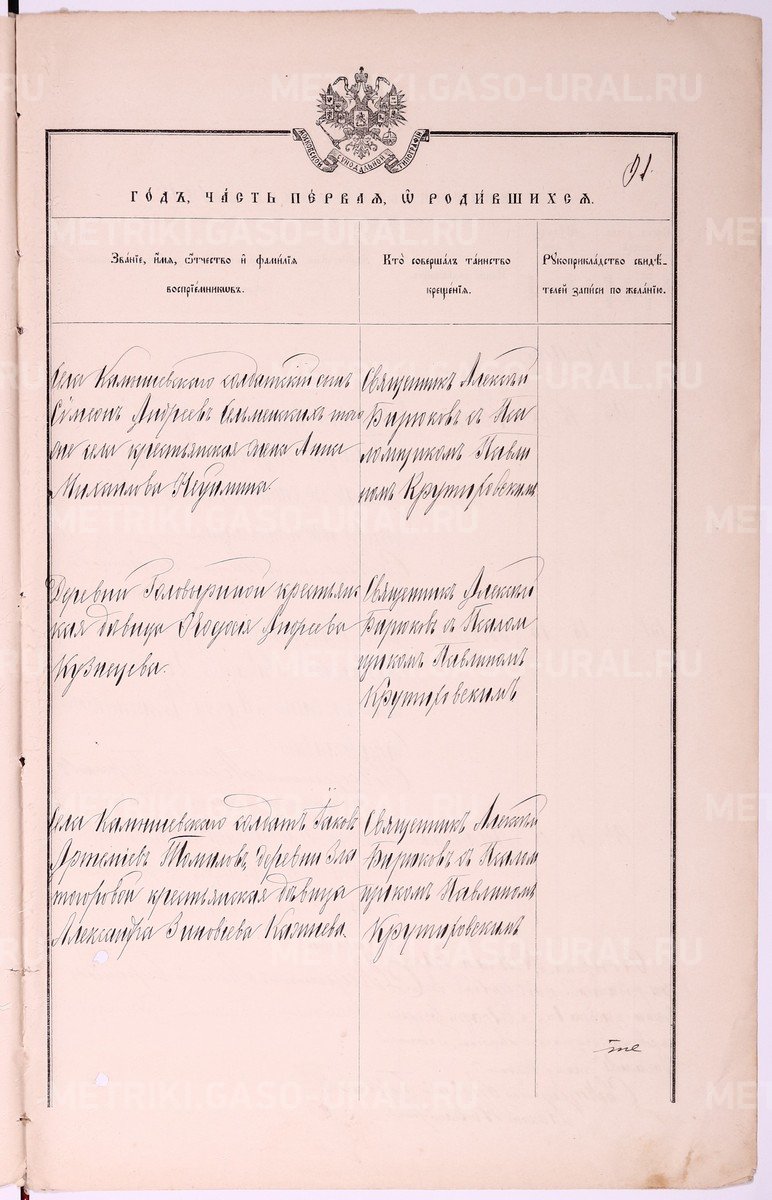 METRIKI.GASO-URAL.RU
МОСКОВСКОЙ СѴНОДАЛЬНОЙ ТИПОГРАФІИ
91.
ГО́ДЪ, ЧА́СТЬ ПЕ́РВАЯ, Ѽ РОДИ́ВШИХСЯ.
Зва́нїе, и҆́мѧ, ѻ҆́тчество и҆ фами́лїѧ
воспрїе́мникѡвъ.
Кто̀ соверша́лъ та́инство
креще́нїѧ.
Рꙋкоприкла́дство свидѣ́-
телей за́писи по жела́нїю.
Села Камышевскаго солдатскій сынъ
Сѵмеонъ Андреевъ того
же села крестьянская жена Анна
Михаилова Неуимина.
Священникъ Алексѣй
Бирюковъ съ Пса
ломщикомъ Павли
номъ Крутиховскимъ
Деревни Головыриной крестьян
ская дѣвица Ѳеодосія Андреева
Кузнецова.
Священникъ Алексѣй
Бирюковъ съ Псалом
щикомъ Павлиномъ
Крутиховскимъ
Села Камышевскаго солдатъ Іаковъ
Артеміевъ Томиловъ, деревни Зла
тогоровой крестьянская дѣвица
Александра Зиновіева
Священникъ Алексѣй
Бирюковъ съ Псалом
щикомъ Павлиномъ
Крутиховскимъ